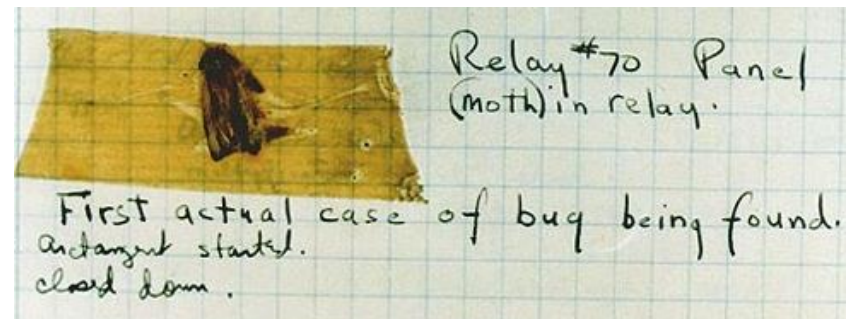 Relay #70 Panel
(moth) in relay.
First actual case of bug being found.
started.
closed down.